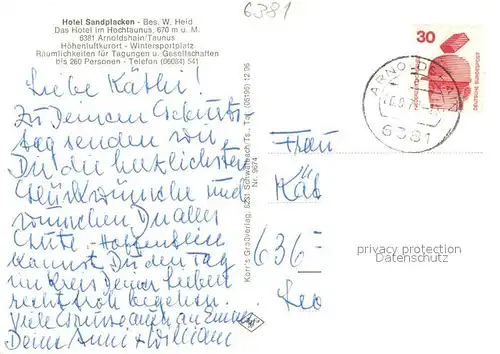 6381
Hotel Sandplacken - Bes. W. Heid
Das Hotel im Hochtaunus, 670 m ü. M.
6381 Arnoldshain/Taunus
Höhenluftkurort - Wintersportplatz
Räumlichkeiten für Tagungen u. Gesellschaften
bis 260 Personen - Telefon (06084) 541
Liebe Käthi!
Zu Deinem Geburts-
tag senden wir
Dir die herzlichsten
Glückwünsche und
wünschen Dir alles
Gute. Hoffentlich
kannst Du den Tag
im Kreis Deiner Lieben
recht froh begehen.
Viele Grüsse auch an
Deine Anni + William
Korr's Großverlag, 6231 Schwalbach/Ts., Tel. (06196) 12 06
Nr. 9674
30
DEUTSCHE BUNDESPOST
ARNOLDSHAIN
6381
Frau
Kät
636
privacy protection
Datenschutz